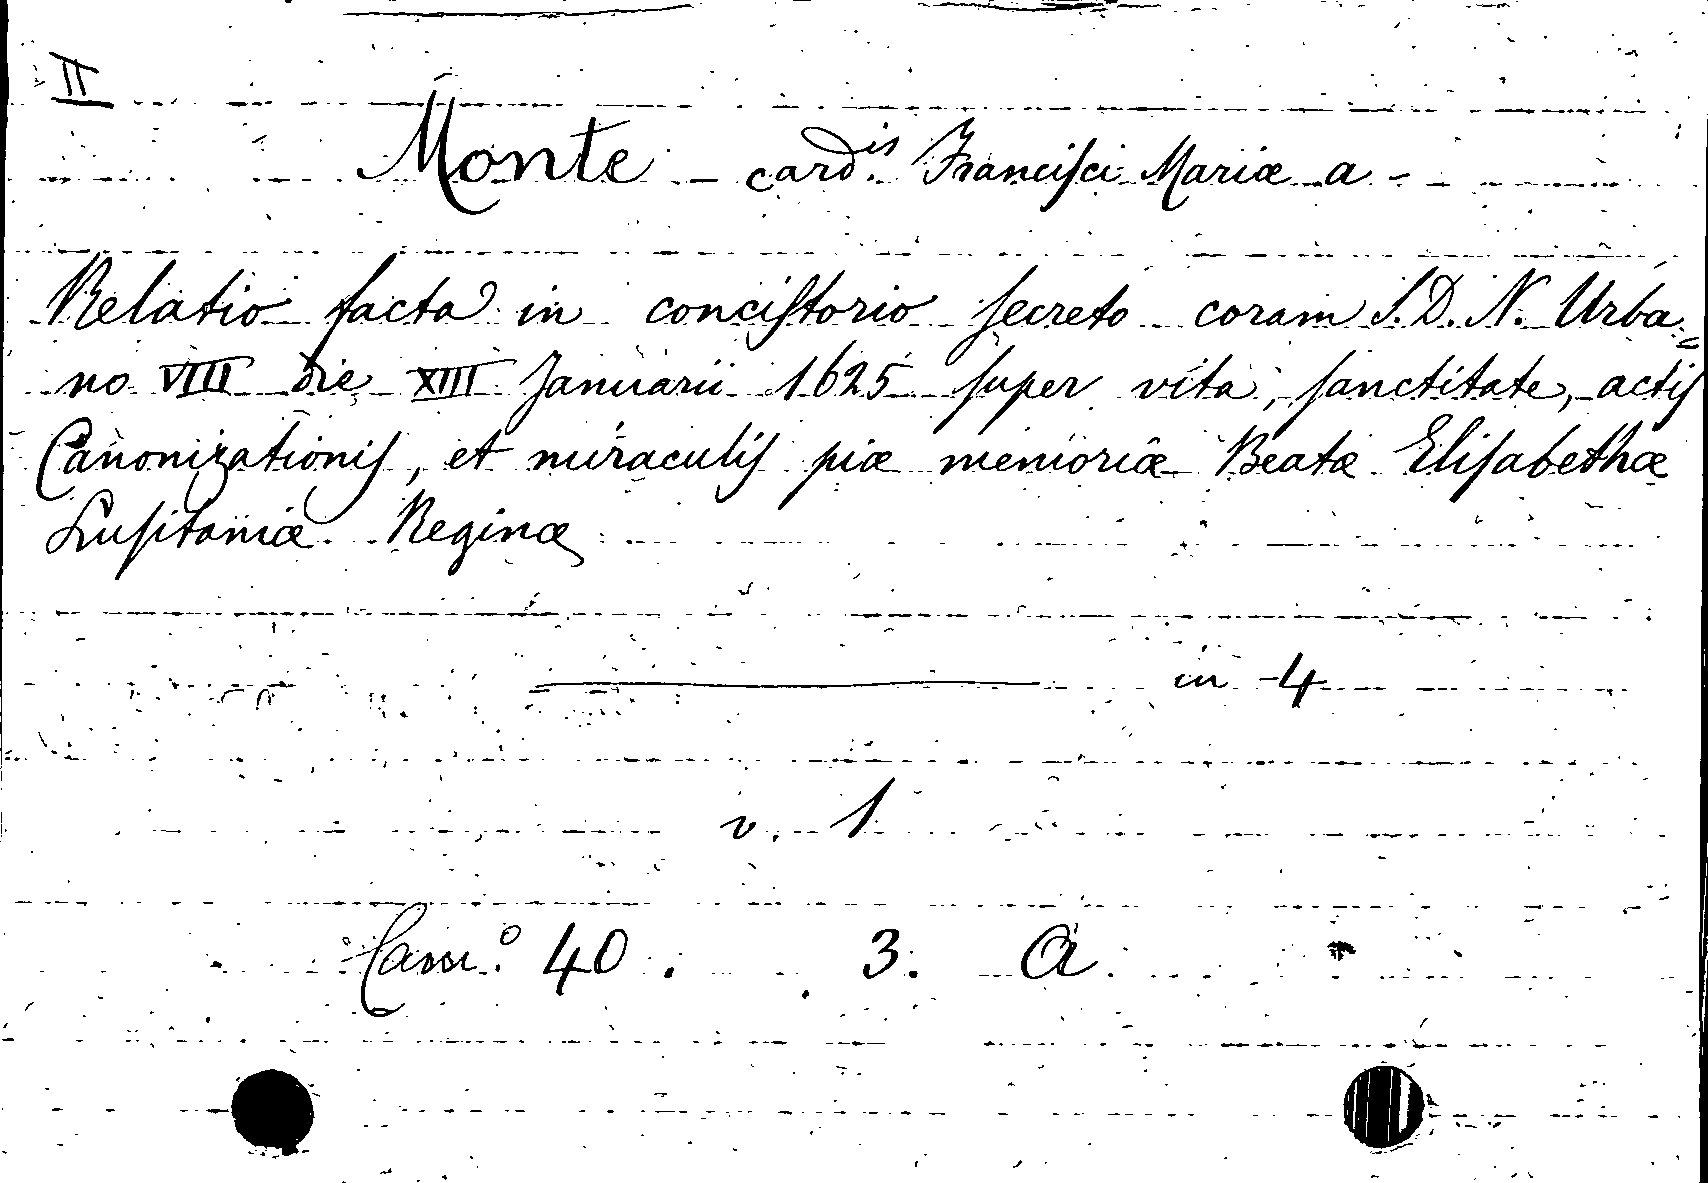 II
Monte - card.is Francisci Mariæ a -
Relatio facta in concistorio secreto coram S. D. N. Urba=
no VIII die XIII Januarii 1625 super vita, sanctitate, actis
Canonizationis, et miraculis piæ memoriæ Beatæ Elisabethæ
Lusitaniæ Reginæ
in - 4
v. 1
Cam.o 40. 3. a.